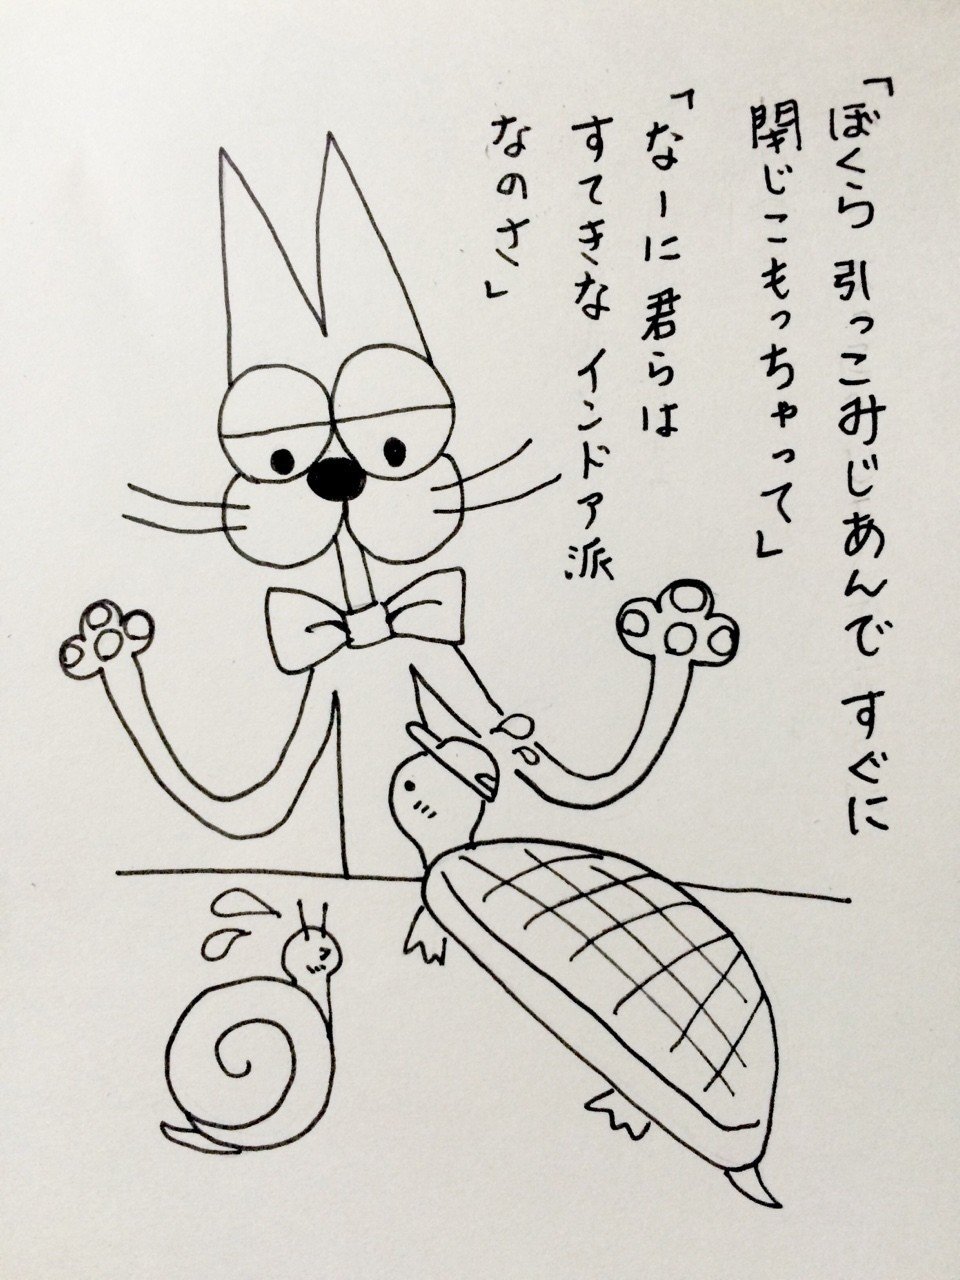 「ぼくら 引っこみじあんで すぐに
閉じこもっちゃって」
「なーに 君らは
すてきな インドア派
なのさ」